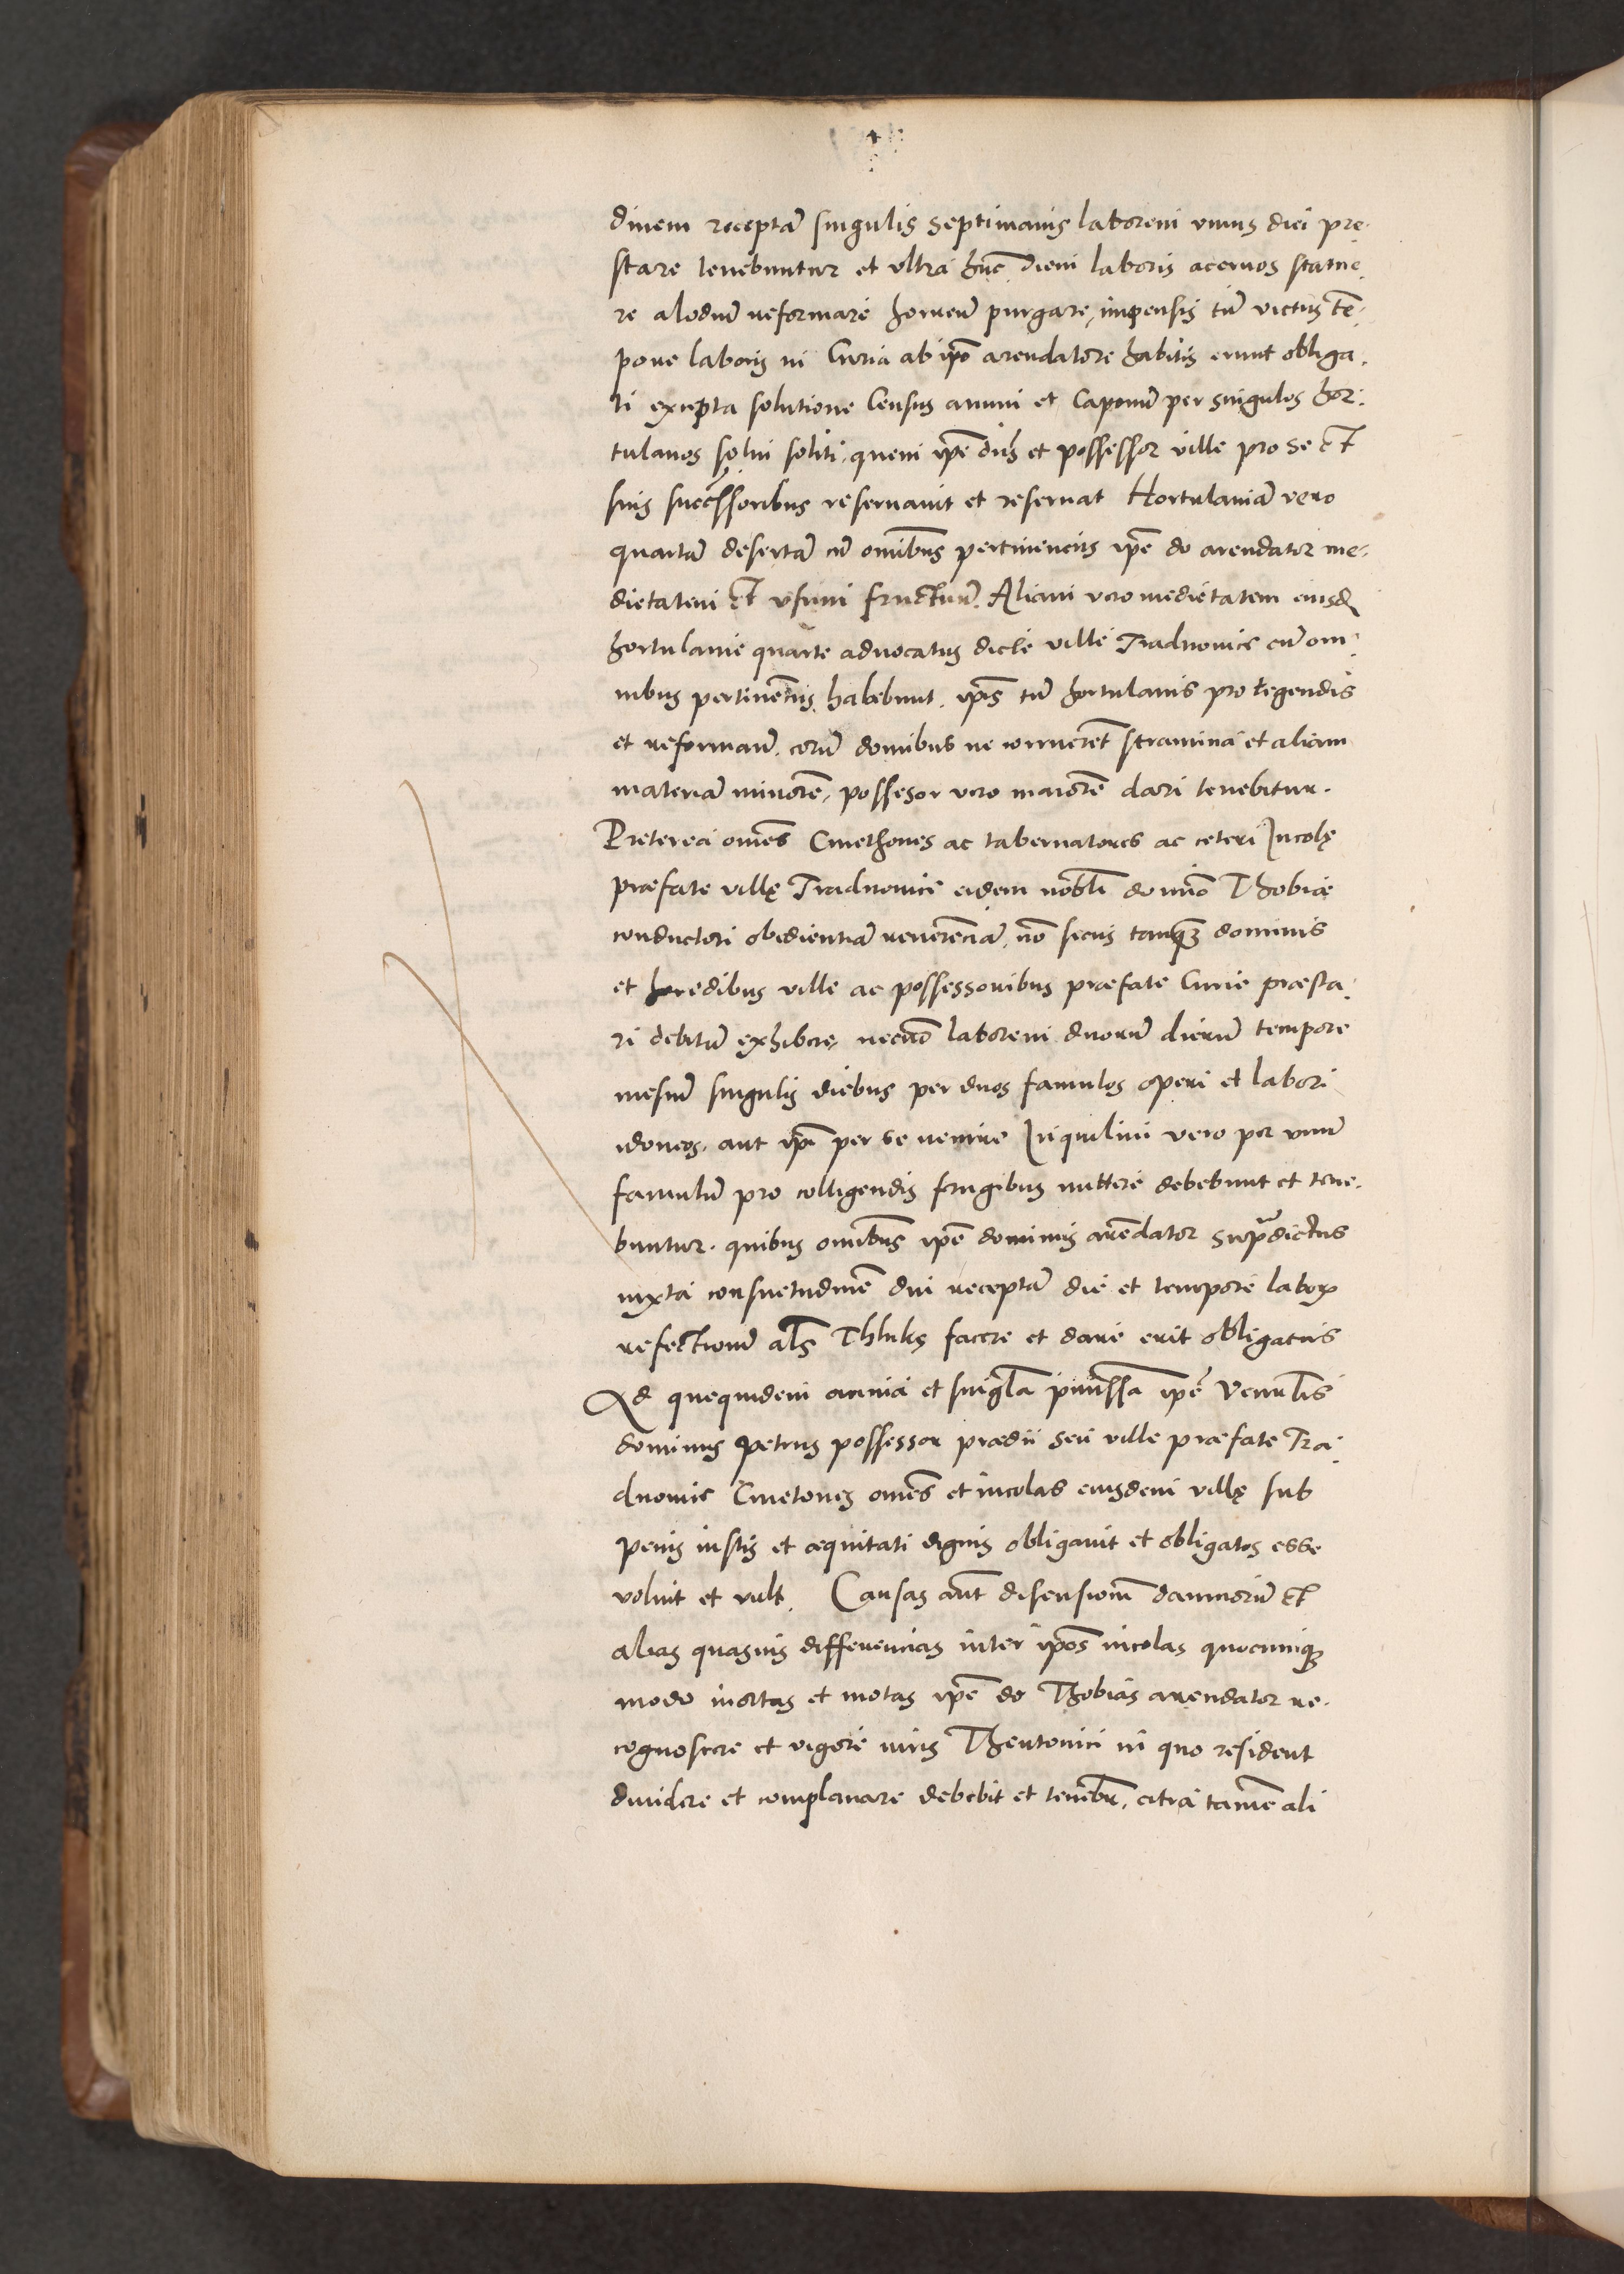 dinem receptā singulis septimanis laborem unius diei pre.
stare tenebuntur et ultra hūc diem laboris acervos statue.
re alodiū reformare horreū purgare, impensis tū victus tē.
pore laboris in Curia ab ipō arendatore habitis erunt obliga.
ti excepta solutione Census annui et Caponū per singulos hor:
tulanos solvi soliti, quem ipē dn̄s et possessor ville pro se et
suis successoribus reservavit et reservat Hortulaniā vero
quartā desertā cū om̄ibus pertinenciis ipē do arendator me.
dietatem et usum fructuū. Aliam vero medietatem eiusd
hortulanie quarte advocatus dicte ville Tradnovice cū om:
nibus pertinēciis habebunt. ipīs tū hortulanis pro tegendis
et reformań. eorū domibus ne corruerēt stramina et aliam
materiā minorē, possesor vero maiorē dari tenebitur.
Preterea om̄es Cmethones ac tabernatores ac ceteri Incolę
præfate villę Tradnovice eidem nobli domīo Thobiæ
conductori obedientiā reverēciā, nō secus tanq̄ dominis
et heredibus ville ac possessoribus præfate Curie præsta:
ri debitū exhibere, necnō laborem duorū dierū tempore
mesiū singulis diebus per duos famulos operi et labori
idoneos, aut ipī per se venire Inquilini vero per unū
famulū pro colligendis frugibus mittere debebunt et tene.
buntur. quibus om̄ibus ipē dominus arēdator supradictus
iuxta consuetudinē diu receptā die et tempore labor
refectionū als Thluks facere et dare erit obligatus
Ad quequidem omnia et singla pmissa ipē Venrlis
dominus Petrus possessor prædii seu ville præfate Tra:
dnovic Cmetones om̄es et incolas eiusdem villę sub
penis iustis et æquitati dignis obligavit et obligatos esse
voluit et vult. Causas aūt disensionū damnorū et
alias quasvis differencias inter ipōs incolas quocunq
modo inortas et motas ipē do Thobias arendator re.
cognoscere et vigore iuris Theutonici in quo resident
dividere et complanare debebit et tenebr̄, citra tamē ali